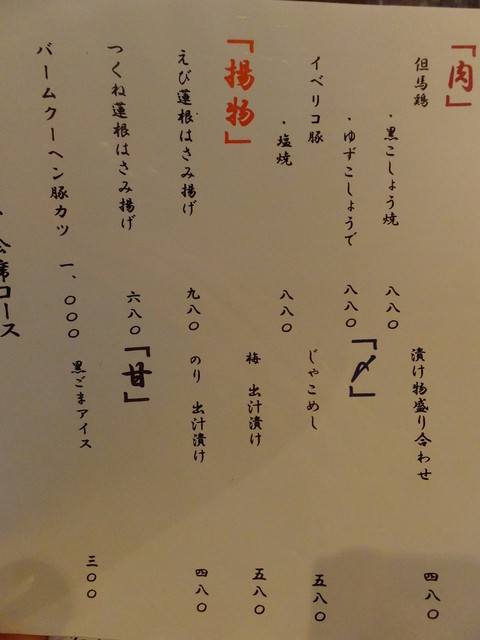 「肉」
但馬鶏
・黒こしょう焼 八八〇
・ゆずこしょうで 八八〇
イベリコ豚
・塩焼 八八〇
「揚物」
えび蓮根はさみ揚げ 九八〇
つくね蓮根はさみ揚げ 六八〇
バームクーヘン豚カツ 一、〇〇〇
「〆」
漬け物盛り合わせ 四八〇
じゃこめし 五八〇
梅 出汁漬け 五八〇
のり 出汁漬け 四八〇
「甘」
黒ごまアイス 三〇〇
会席コース